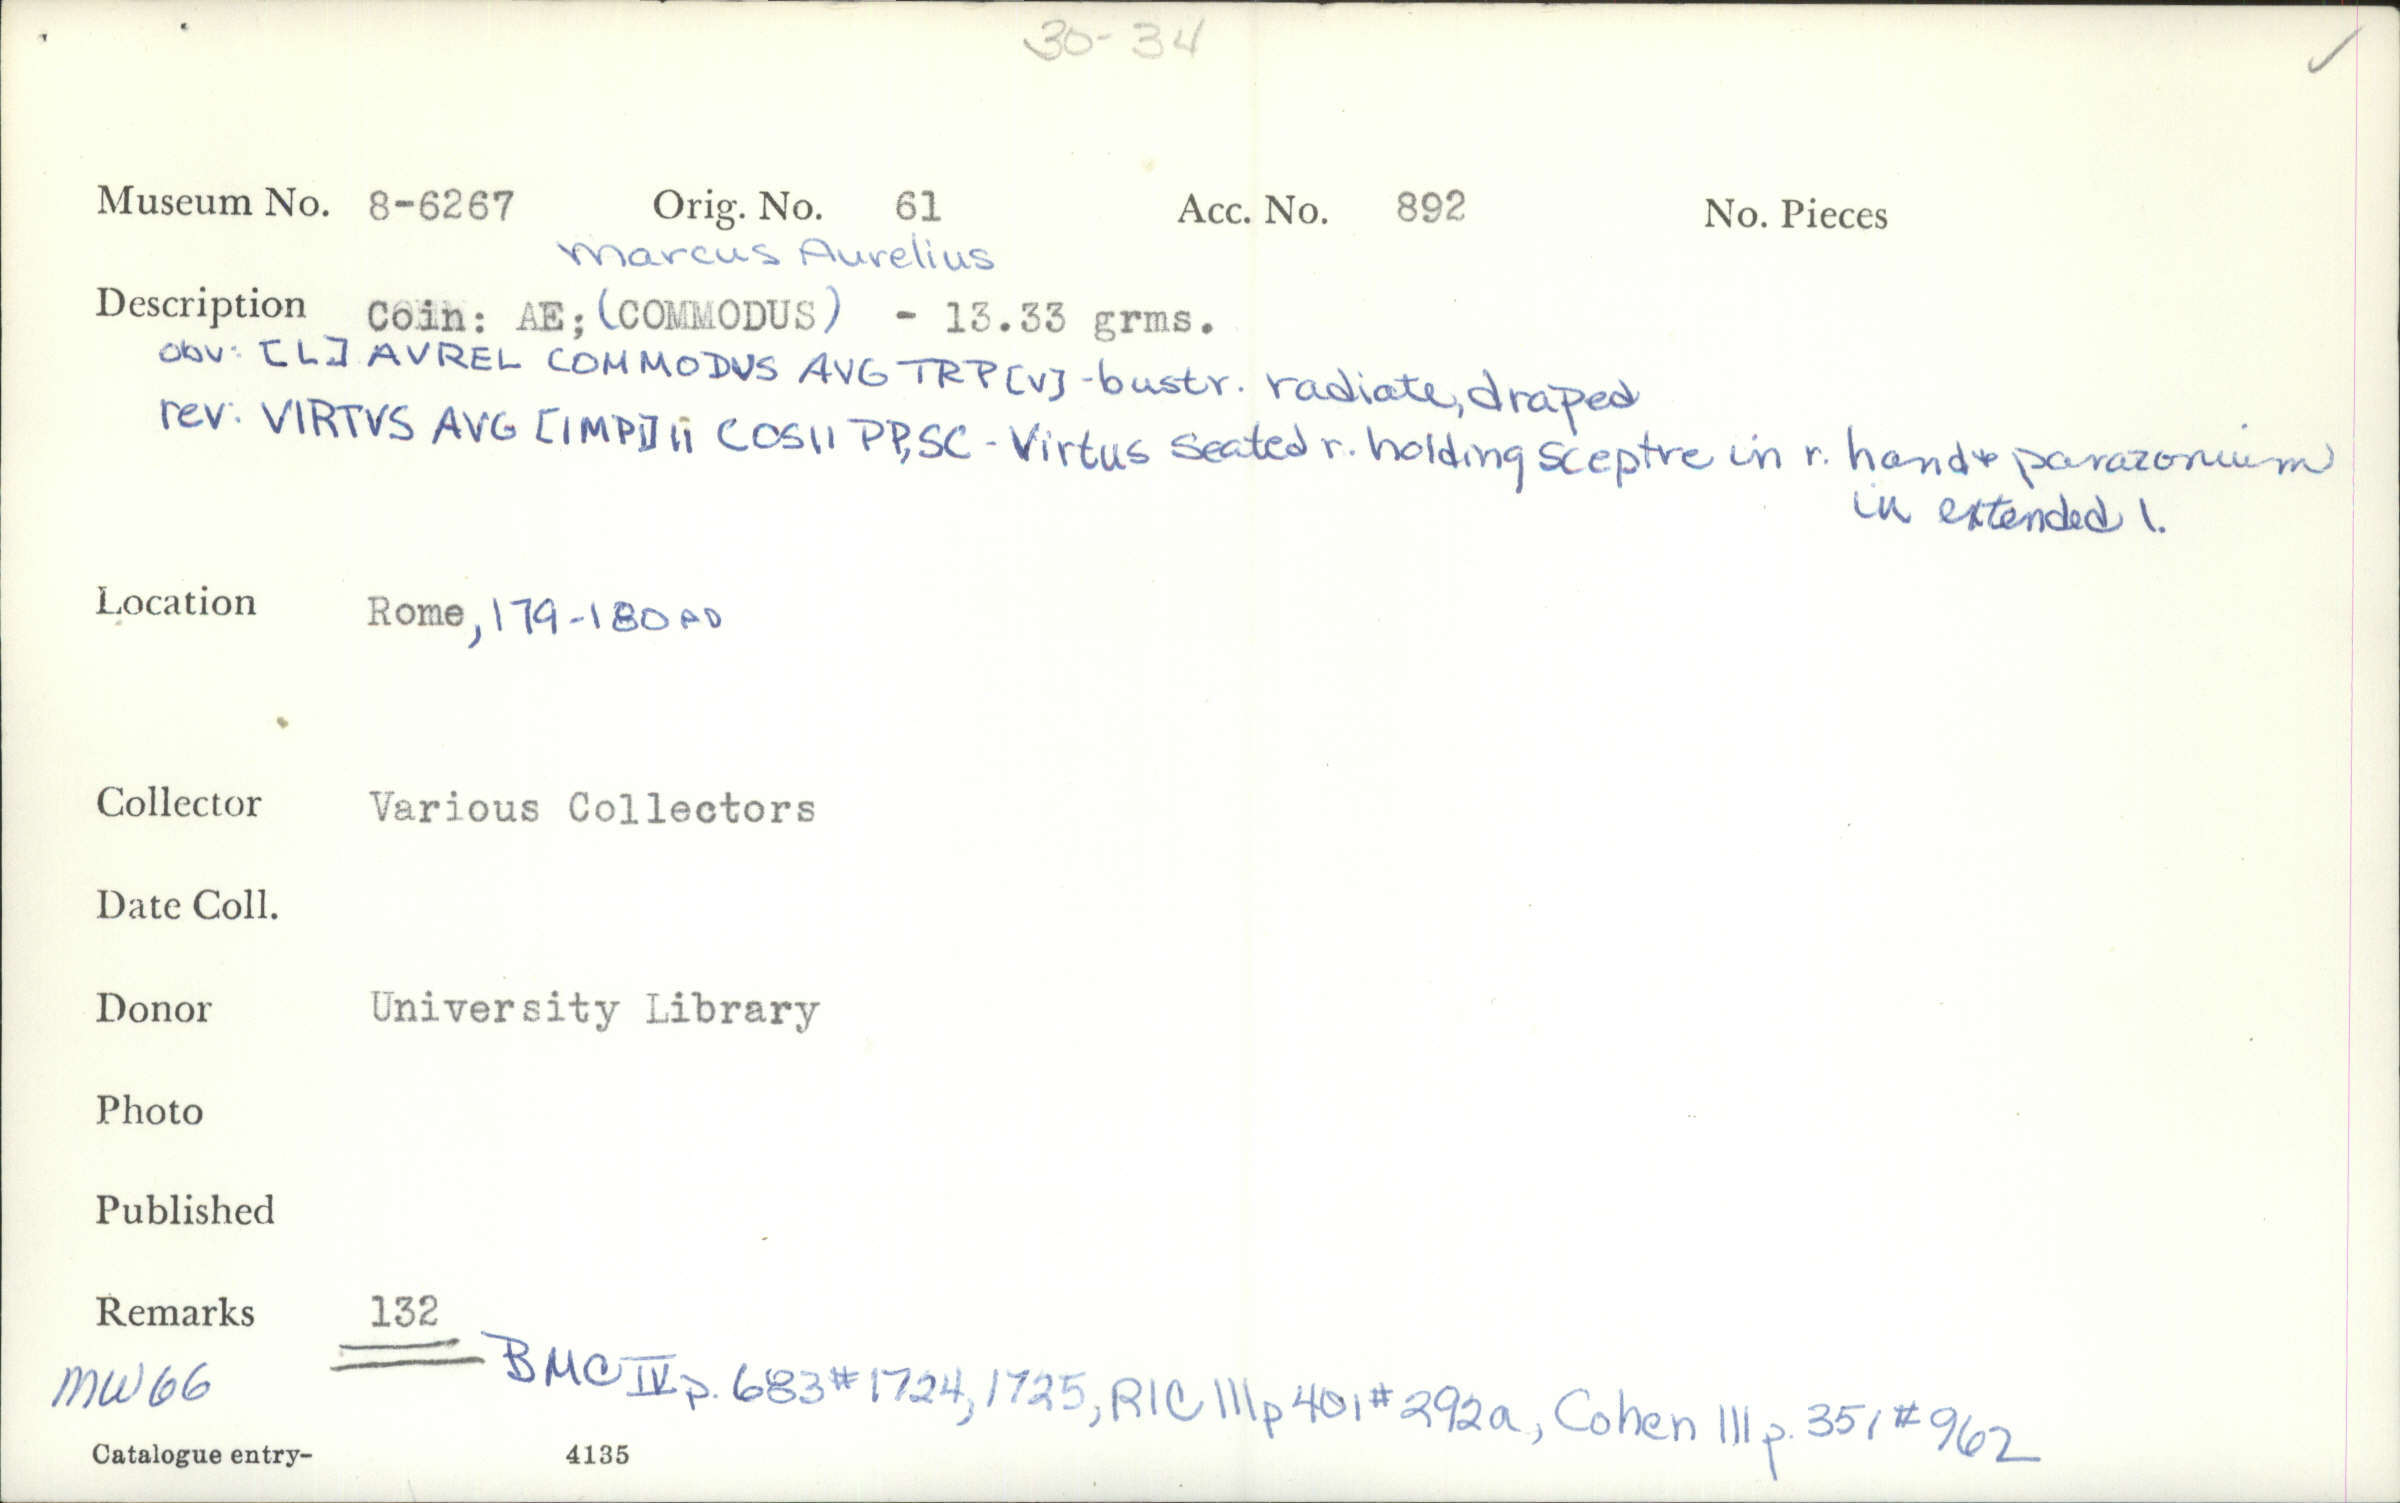 30-34 ✓
Museum No. 8-6267 Orig. No. 61 Acc. No. 892 No. Pieces
Marcus Aurelius
Description Coin: AE; (COMMODUS) - 13.33 grms.
obv: [L] AVREL COMMODVS AVG TRP [V] - bust r. radiate, draped
rev: VIRTVS AVG [IMP] II COS II PP, SC - Virtus seated r. holding sceptre in r. hand & parazonium
in extended l.
Location Rome, 179-180 AD
Collector Various Collectors
Date Coll.
Donor University Library
Photo
Published
Remarks 132
MW66 BMC IV p. 683 # 1724, 1725, RIC III p 401 # 292a, Cohen III p. 351 # 962
Catalogue entry- 4135